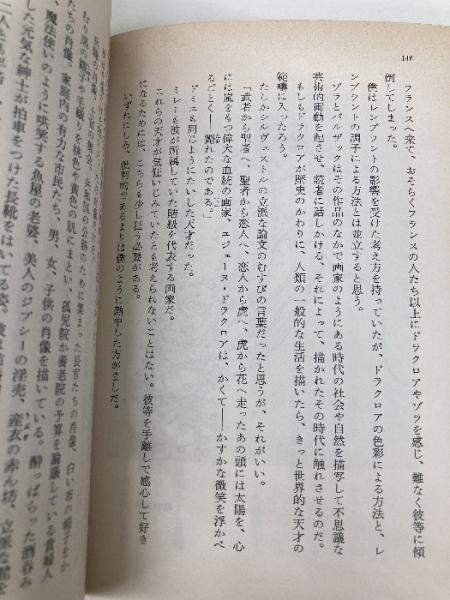 146
フランスへ来て、おそらくフランスの人たち以上にドラクロアやゾラを感じ、難なく彼等に傾
倒してしまった。
僕はレンブラントの影響を受けた考え方を持っていたが、ドラクロアの色彩による方法と、レ
ンブラントの調子による方法とは並立すると思う。
ゾラとバルザックはその作品のなかで画家のようにある時代の社会や自然を描写して不思議な
芸術的衝動を起させ、読者に話しかける、それによって、描かれたその時代に触れさせるのだ。
もしもドラクロアが歴史のかわりに、人類の一般的な生活を描いたら、きっと世界的な天才の
範疇に入ったろう。
たしかシルヴェストルの立派な論文のむすびの言葉だったと思うが、それがいい。
「武者から聖者へ、聖者から恋人へ、恋人から虎へ、虎から花へ走ったあの頭には太陽を、心
には嵐をもつ偉大な血統の画家、ユジェーヌ・ドラクロアは、かくて――かすかな微笑を浮かべ
るごとく――斃れたのである。」
ドミエも同じようにたいした天才だった。
ミレーも彼が所属していた階級を代表する画家だ。
これらの天才が気狂いじみていたとも考えられないことはない。彼等を手離しで感心して好き
になるためには、こちらも少し狂う必要がある。
いずれにしろ、批判的であるよりは僕のように熱中した方がましだ。
長官たちの肖像、白い布の帽子をか
むり、黒の
養老院の予算を論議している貴婦人
たちの肖像、家庭内の有力な市民たち、男、女、子供の肖像を描いている。酔っぱらった酒呑み
、魔法使いのように哄笑する魚屋の老婆、美人のジプシーの淫売、産衣の赤ん坊、立派な鎧を
した元気な紳士が拍車をつけた長靴をはいてる姿。彼は